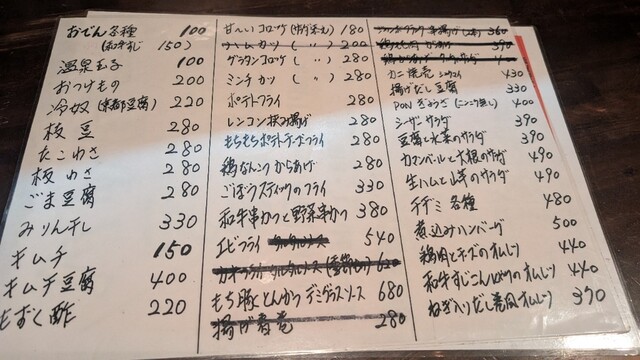 おでん各種 100
(和牛すじ 150)
温泉玉子 100
おつけもの 200
冷奴 (京都豆腐) 220
枝豆 280
たこわさ 280
板わさ 280
ごま豆腐 280
みりん干し 330
キムチ 150
キムチ豆腐 400
もずく酢 220
甘〜いコロッケ 180
ハムカツ ( 〃 ) 200
グラタンコロッケ ( 〃 ) 280
ミンチカツ ( 〃 ) 280
ポテトフライ 280
レンコン挟み揚げ 280
もちもちポテトチーズフライ 280
鶏なんこつからあげ 280
ごぼうスティックのフライ 330
和牛串かつと野菜串かつ 380
エビフライ 540
620
もち豚とんかつ デミグラスソース 680
揚げ春巻 280
360
390
カニ焼売 430
揚げだし豆腐 330
PON ぎょうざ (ニンニク無し) 400
シーザーサラダ 390
豆腐と水菜のサラダ 390
カマンベールと大根のサラダ 490
生ハムと山芋のサラダ 490
チヂミ 各種 480
煮込みハンバーグ 500
鶏肉とチーズのオムレツ 440
和牛すじこんにゃくのオムレツ 440
ねぎ入りだし巻風オムレツ 390